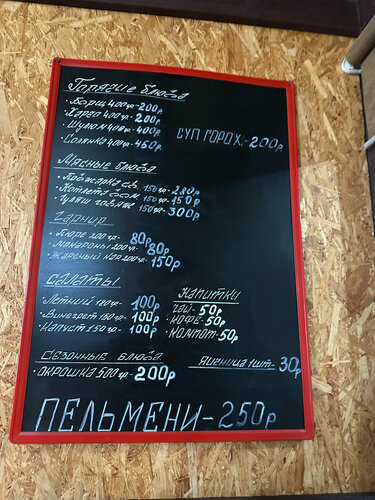 Горячие блюда
· Борщ 400гр-200р
· Харчо 400гр-200р
· Шулюм 400гр-400р
· Солянка 400гр-450р
СУП ГОРОХ.-200р
Мясные блюда
· Поджарка св. 150гр-280р
· Котлета дом 150гр-150р
· Гуляш говяж 150гр-300р
Гарнир
· Пюре 200гр- 80р
· Макароны 200гр- 80р
· Жареный кар 200гр- 150р
Салаты
· Летний 150гр- 100р
· Винегрет 150гр- 100р
· Капуст 150гр- 100р
Напитки
· Чай- 50р
· Кофе-50р
· Компот-50р
Сезонные блюда
· Окрошка 500гр- 200р
Яичница 1шт- 30р
ПЕЛЬМЕНИ-250р